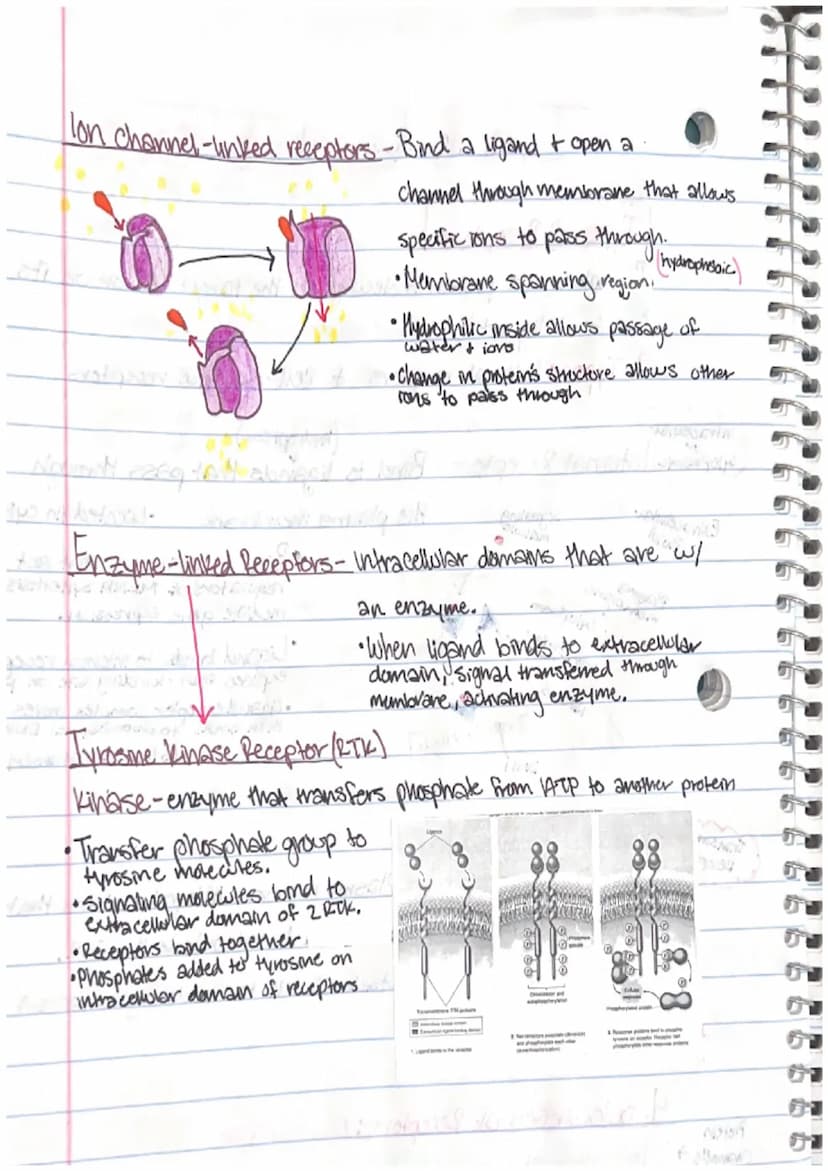 Ion channel-linked receptors - Bind a ligand + open a
channel through membrane that allows
specific ions to pass through.
(hydrophobic)
• Membrane spanning region.
• Hydrophilic inside allows passage of
water + ions
• Change in protein's structure allows other
ions to pass through
Enzyme-linked Receptors - Intracellular domains that are w/
an enzyme.
• When ligand binds to extracellular
domain, signal transferred through
membrane, activating enzyme.
Tyrosine Kinase Receptor (RTK)
Kinase - enzyme that transfers phosphate from ATP to another protein
• Transfer phosphate group to
tyrosine molecules.
• Signaling molecules bind to
extracellular domain of 2 RTK.
• Receptors bind together.
• Phosphates added to tyrosine on
intracellular domain of receptors
Ligands
Dimerization and
autophosphorylation
Cellular
response
Phosphorylated protein